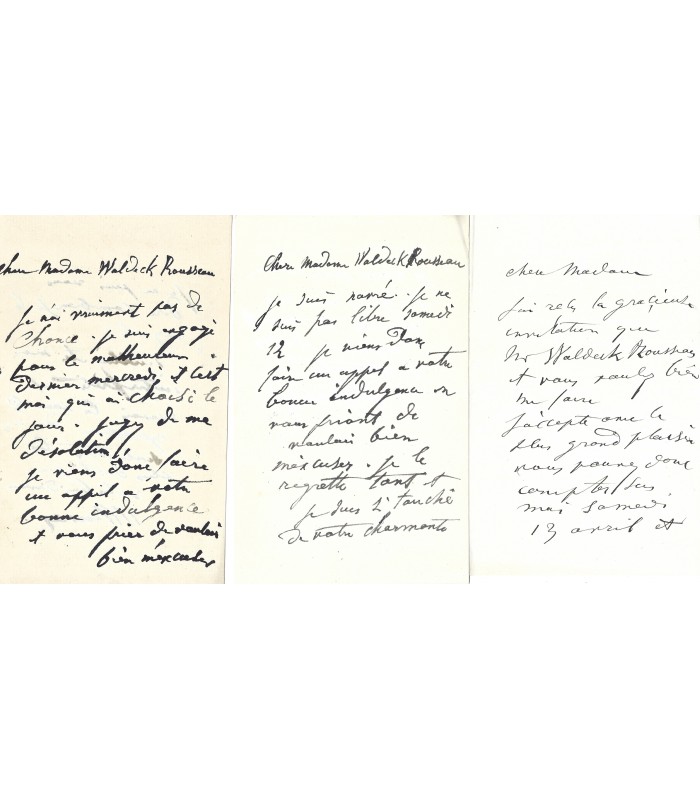 cher Madame Waldeck Rousseau
je n'ai vraiment pas de
chance. je suis engagé
pour le malheureux
dernier mercredi et c'est
moi qui ai choisi le
jour. jugez de ma
désolation!
je viens donc faire
un appel a votre
bonne indulgence
et vous prier de vouloir
bien m'excuser
Chere Madame Waldeck Rousseau
je suis navré. je ne
suis pas libre samedi
12 je viens donc
faire un appel a votre
bonne indulgence en
vous priant de
vouloir bien
m'excuser. je le
regrette tant et
je suis si touché
de votre charmante
cher Madame
j'ai reçu la gracieuse
invitation que
Mr Waldeck Rousseau
et vous voulez bien
me faire
j'accepte avec le
plus grand plaisir
vous pouvez donc
compter sur
moi samedi
13 avril et